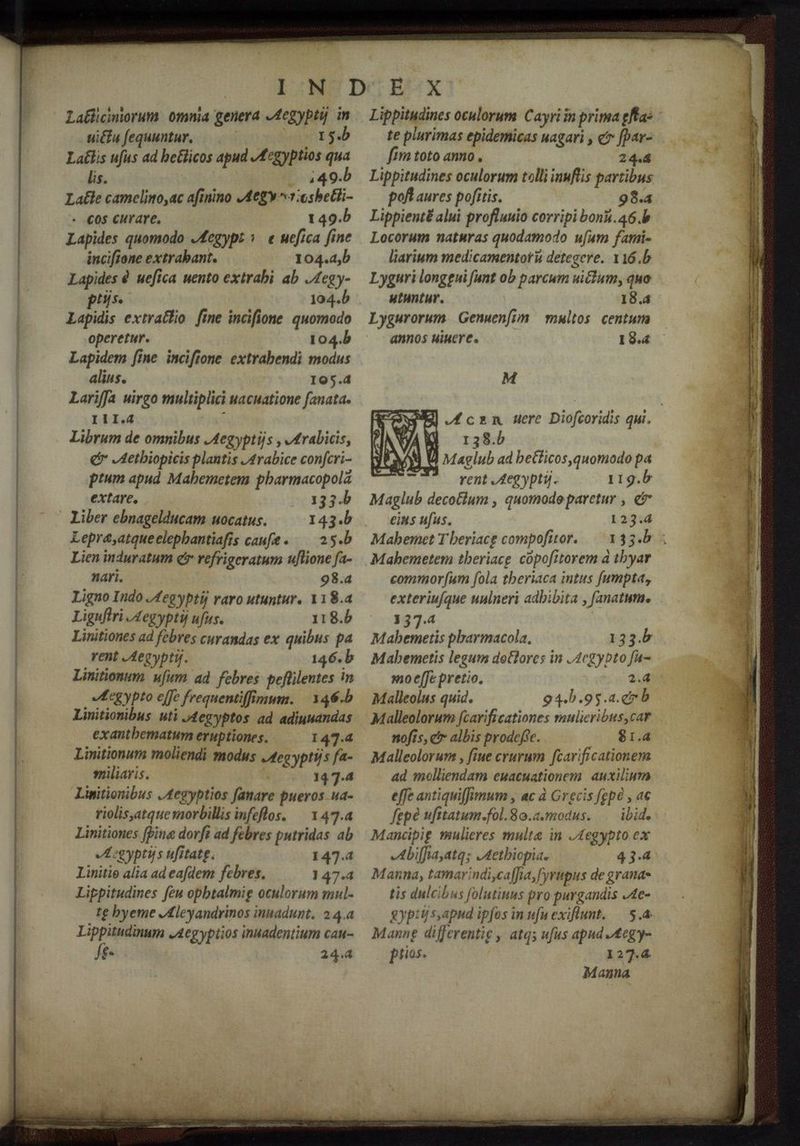 INDEX
Lacticiniorum omnia genera Aegyptij in
uictu sequuntur. 15.b
Lactis usus ad hecticos apud Aegyptios qua
lis. 149.b
Lacte camelino, ac asinino Aegy hecti-
cos curare. 149.b
Lapides quomodo Aegypt e uesica sine
incisione extrahant. 104.a,b
Lapides è uesica uento extrahi ab Aegy-
ptijs. 104.b
Lapidis extractio sine incisione quomodo
operetur. 104.b
Lapidem sine incisione extrahendi modus
alius. 105.a
Larissa uirgo multiplici uacuatione sanata.
111.a
Librum de omnibus Aegyptijs, Arabicis,
& Aethiopicis plantis Arabice conscri-
ptum apud Mahemetem pharmacopolã
extare. 133.b
Liber ebnagelducam uocatus. 143.b
Lepræ, atque elephantiasis causæ. 25.b
Lien induratum & refrigeratum ustione sa-
nari. 98.a
Ligno Indo Aegyptij raro utuntur. 118.a
Ligustri Aegyptij usus. 118.b
Linitiones ad febres curandas ex quibus pa
rent Aegyptij. 146.b
Linitionum usum ad febres pestilentes in
Aegypto esse frequentissimum. 146.b
Linitionibus uti Aegyptos ad adiuuandas
exanthematum eruptiones. 147.a
Linitionum moliendi modus Aegyptijs fa-
miliaris. 147.a
Linitionibus Aegyptios sanare pueros ua-
riolis, atque morbillis infestos. 147.a
Linitiones spinæ dorsi ad febres putridas ab
Aegyptijs usitatę. 147.a
Linitio alia ad easdem febres. 147.a
Lippitudines seu ophtalmię oculorum mul-
tę hyeme Aleyandrinos inuadunt. 24.a
Lippitudinum Aegyptios inuadentium cau-
sę. 24.a
Lippitudines oculorum Cayri in prima ęsta-
te plurimas epidemicas uagari, & spar-
sim toto anno. 24.a
Lippitudines oculorum tolli inustis partibus
post aures positis. 98.a
Lippientẽ alui profluuio corripi bonũ. 46.b
Locorum naturas quodamodo usum fami-
liarium medicamentorũ detegere. 116.b
Lyguri longęui sunt ob parcum uictum, quo
utuntur. 18.a
Lygurorum Genuensim multos centum
annos uiuere. 18.a
M
MAcer uere Dioscoridis qui.
138.b
Maglub ad hecticos, quomodo pa
rent Aegyptij. 119.b
Maglub decoctum, quomodo paretur, &
eius usus. 123.a
Mahemet Theriacę compositor. 133.b
Mahemetem theriacę cõpositorem à thyar
commorsum sola theriaca intus sumpta,
exteriusque uulneri adhibita, sanatum.
137.a
Mahemetis pharmacola. 133.b
Mahemetis legum doctores in Aegypto su-
mo esse pretio. 2.a
Malleolus quid. 94.b.95.a.& b
Malleolorum scarificationes mulieribus, car
nosis, & albis prodesse. 81.a
Malleolorum, siue crurum scarificationem
ad molliendam euacuationem auxilium
esse antiquissimum, ac à Grecis sępè, ac
sępè usitatum. fol. 80.a. modus. ibid.
Mancipię mulieres multæ in Aegypto ex
Abissia, atq; Aethiopia. 43.a
Manna, tamarindi, cassia, syrupus de grana-
tis dulcibus solutiuus pro purgandis Ae-
gyptijs, apud ipsos in usu existunt. 5.a
Mannę differentię, atq; usus apud Aegy-
ptios. 127.a
Manna